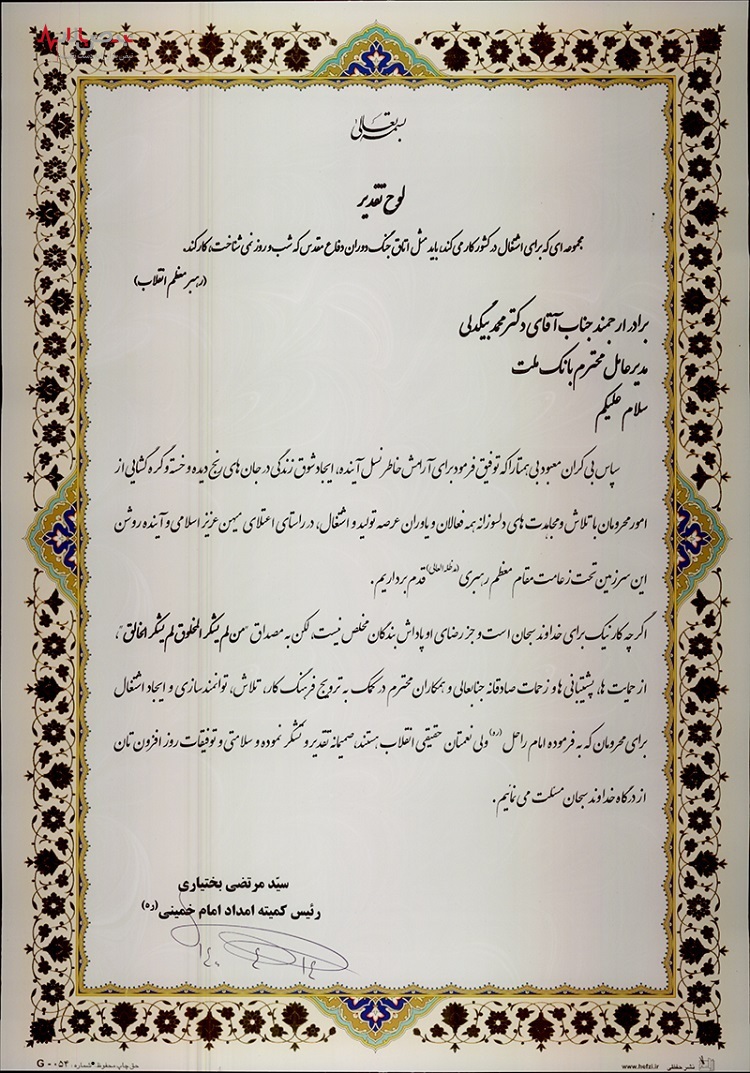 بسمه تعالی
لوح تقدیر
مجموعه ای که برای اشتغال در کشور کار می کند، باید مثل اتاق جنگ دوران دفاع مقدس که شب و روز نمی شناخت، کار کند.
(رهبر معظم انقلاب)
برادر ارجمند جناب آقای دکتر محمد بیگدلی
مدیرعامل محترم بانک ملت
سلام علیکم
سپاس بی کران معبود بی همتا را که توفیق فرمود برای آرامش خاطر نسل آینده، ایجاد شوق زندگی در جان های رنج دیده و خسته و گره گشایی از
امور محرومان با تلاش و مجاهدت های دلسوزانه همه فعالان و یاوران عرصه تولید و اشتغال، در راستای اعتلای میهن عزیز اسلامی و آینده روشن
این سرزمین تحت زعامت مقام معظم رهبری (مدظله العالی) قدم برداریم.
اگرچه کار نیک برای خداوند سبحان است و جز رضای او پاداش بندگان مخلص نیست، لکن به مصداق "من لم یشکر المخلوق لم یشکر الخالق"،
از حمایت ها، پشتیبانی ها و زحمات صادقانه جنابعالی و همکاران محترم در کمک به ترویج فرهنگ کار، تلاش، توانمندسازی و ایجاد اشتغال
برای محرومان که به فرموده امام راحل (ره) ولی نعمتان حقیقی انقلاب هستند، صمیمانه تقدیر و تشکر نموده و سلامتی و توفیقات روز افزون تان
از درگاه خداوند سبحان مسئلت می نمایم.
سیّد مرتضی بختیاری
رئیس کمیته امداد امام خمینی (ره)
۱۴۰۰/۴/۱۴
نشر حفظی www.hefzi.ir
حق چاپ محفوظ شماره: G-۰۵۴